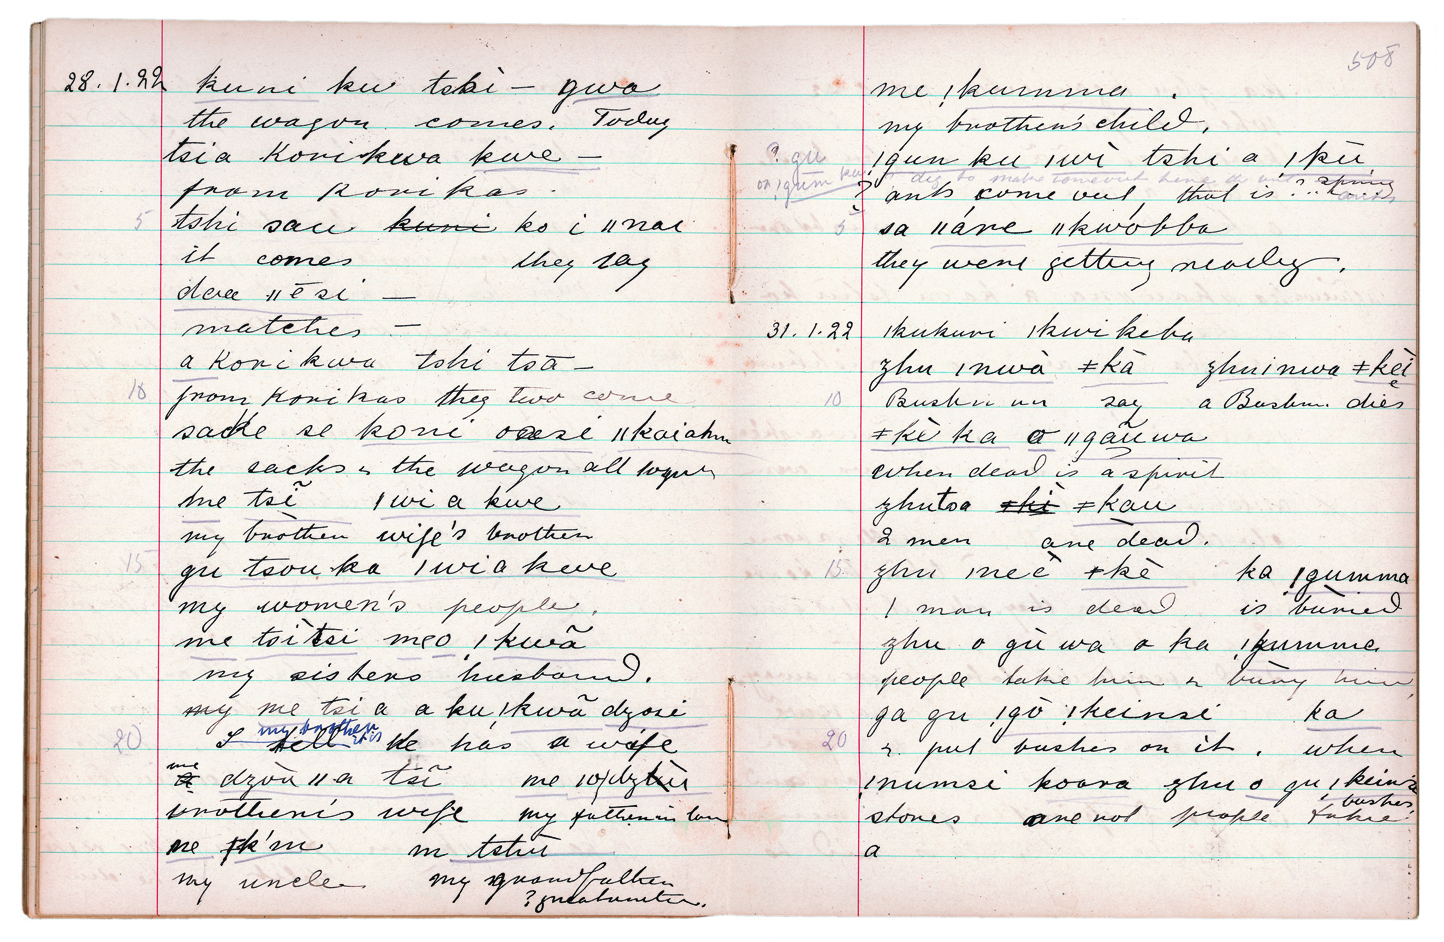 28.1.22 kuni ku tshi — gwa
the wagon comes. Today
tsia Korikwa kwe —
from Korikas.
5 tshi sau kuni ko i ǁnai
it comes they say
daa ǁēsi —
matches —
a Korikwa tshi tsā —
10 from Korikas they two come
sacke se koni oasi
the sacks & the wagon all
me tsĩ ǀwi a kwe
my brother wife's brother
15 gu tsou ka ǀwi a kwe
my women's people.
me tsìtsi meo ǃkwã
my sisters husband.
my me tsi a a ku ǃkwã dzosi
my brother
20 I tell he has a wife
me
a dzoù ǁa tsĩ me
brother's wife my father in law
ne m tshu
my uncle my grandfather
508
me ǃkumma.
my brother's child.
? gu ǃgun ku ǀwì tshi a ǃkù
or ǃgum ku
? ants come out, that is ? spring
5 sa ǁáre ǁkwobba
they were getting nearby.
31.1.22 ǀkukuri ǀkwikeba
zhu ǀnwà ǂkà zhuǀnwa ǂkèi
10 Bushman say a Bushm. dies
ǂkè ka a ǁgãuwa
when dead is a spirit
zhutsa ǂkì ǂkau
2 men are dead.
15 zhu ǀneè ǂkè ka ǃgumma
1 man is dead is buried
zhu o gù wa o ka ǃgumma
people take him & bury him,
ga gu ǃgò ǃkeinsi ka
20 & put bushes on it. when
ǃnumsi koara zhu o gu ǃkeinsi
bushes
stones are not people take
a